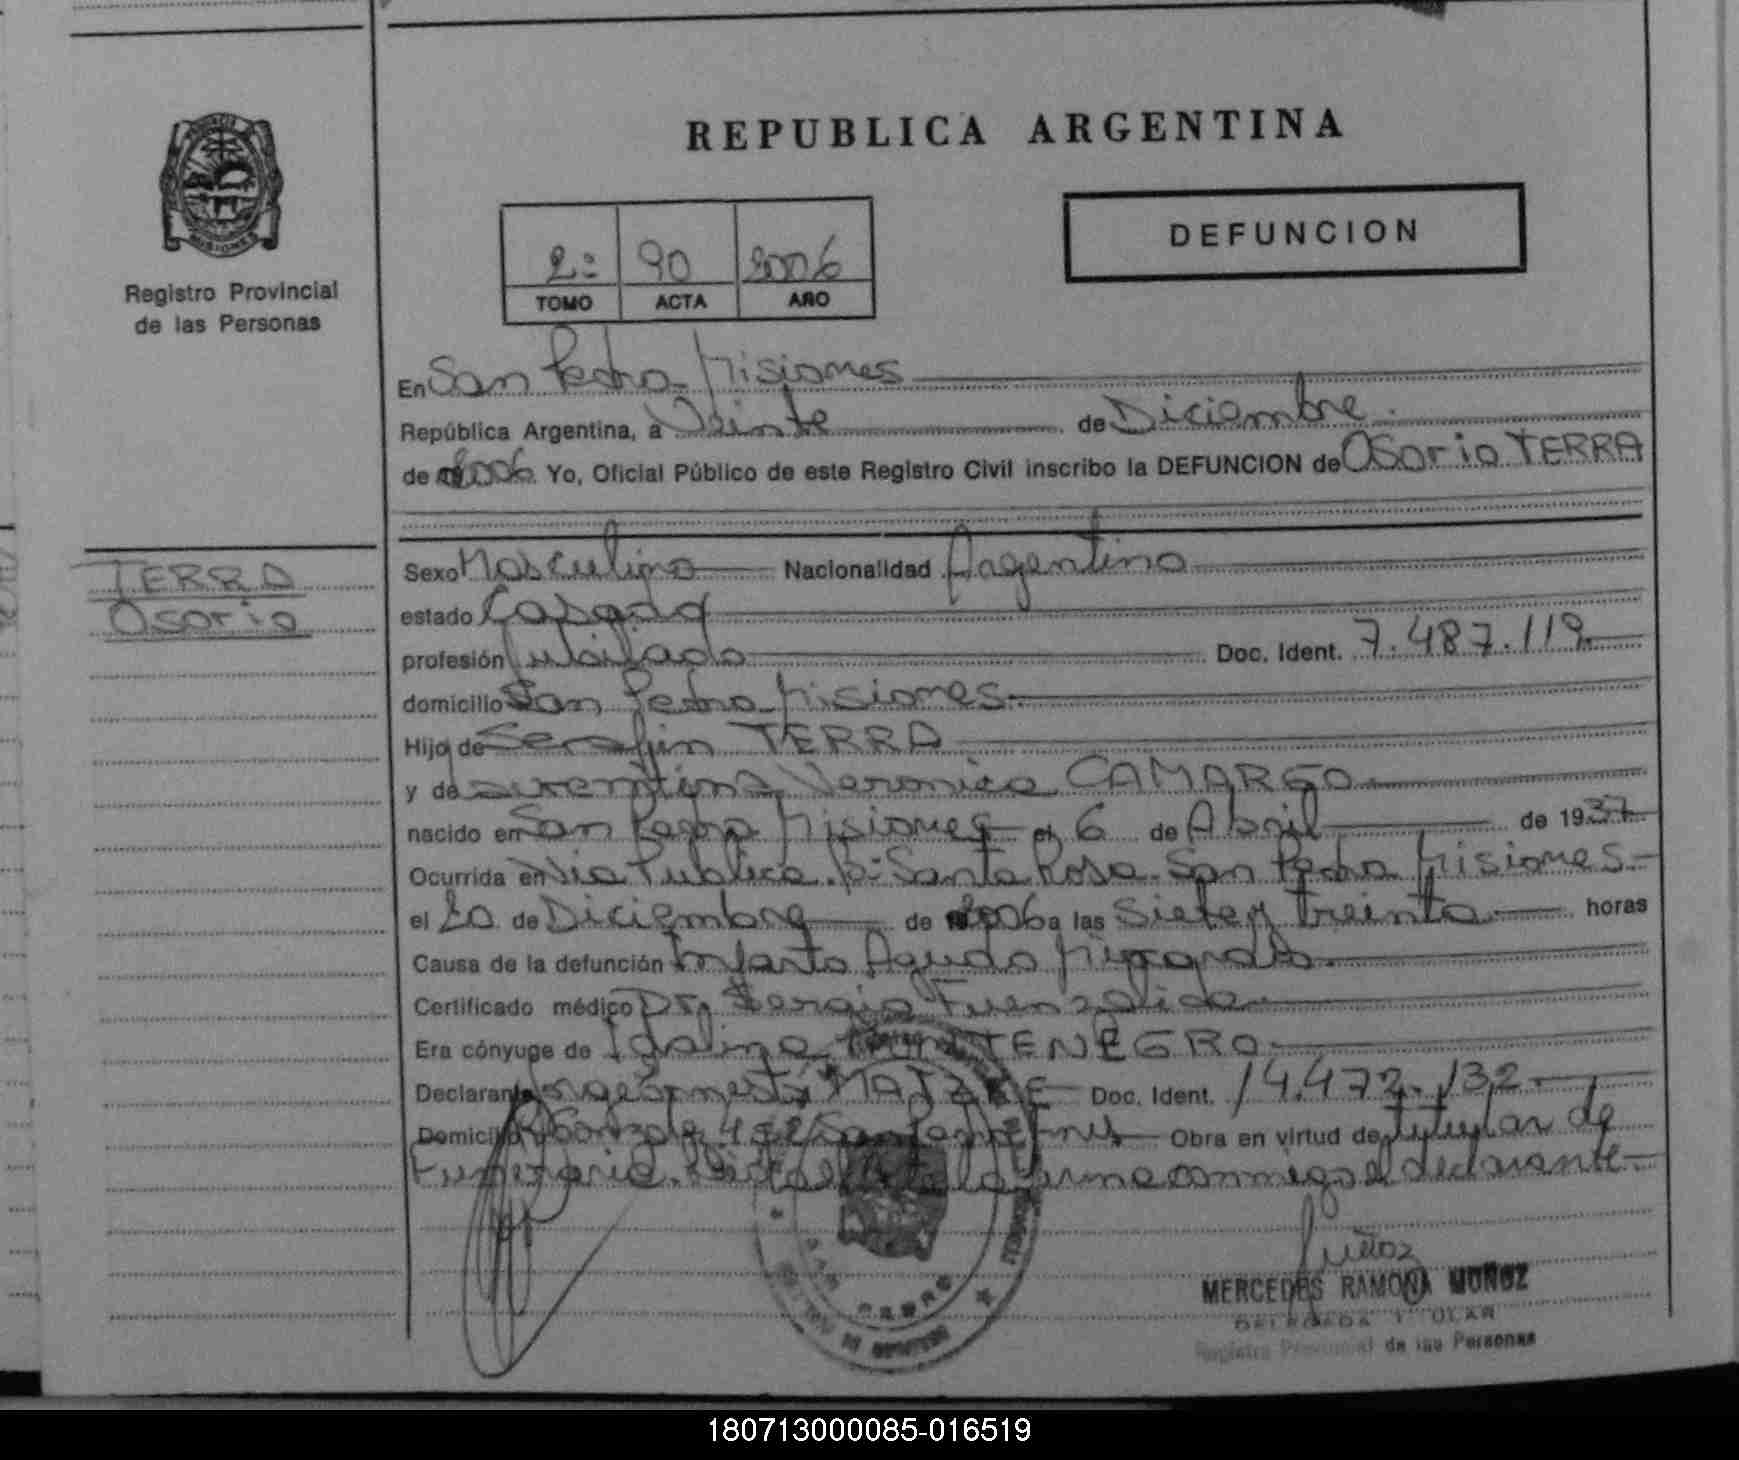 REPUBLICA ARGENTINA
DEFUNCION
2º 90 2006
TOMO ACTA AÑO
MISIONES
Registro Provincial
de las Personas
En San Pedro Misiones
República Argentina, a Veinte de Diciembre
de 2006 Yo, Oficial Público de este Registro Civil inscribo la DEFUNCION de Osorio TERRA
TERRA
Osorio
Sexo Masculino Nacionalidad Argentino
estado Casado
profesión Jubilado Doc. Ident. 7.487.119
domicilio San Pedro Misiones
Hijo de Serafin TERRA
y de Veronica CAMARGO
nacido en San Pedro Misiones el 6 de Abril de 1937
Ocurrida en Via Publica. Bº Santa Rosa. San Pedro Misiones
el 20 de Diciembre de 2006 a las Siete y treinta horas
Causa de la defunción Infarto Agudo Miocardio
Certificado médico Dr. Sergio Fuenzalida
Era cónyuge de Idalina MONTENEGRO
Declarante Jorge Ernesto Doc. Ident. 14.472.132
Domicilio San Pedro Mnes Obra en virtud de titular de
Funeraria. Leida el Acta la firma conmigo el declarante
Muñoz
MERCEDES RAMONA MUÑOZ
DELEGADA TITULAR
Registro Provincial de las Personas
SAN PEDRO
180713000085-016519